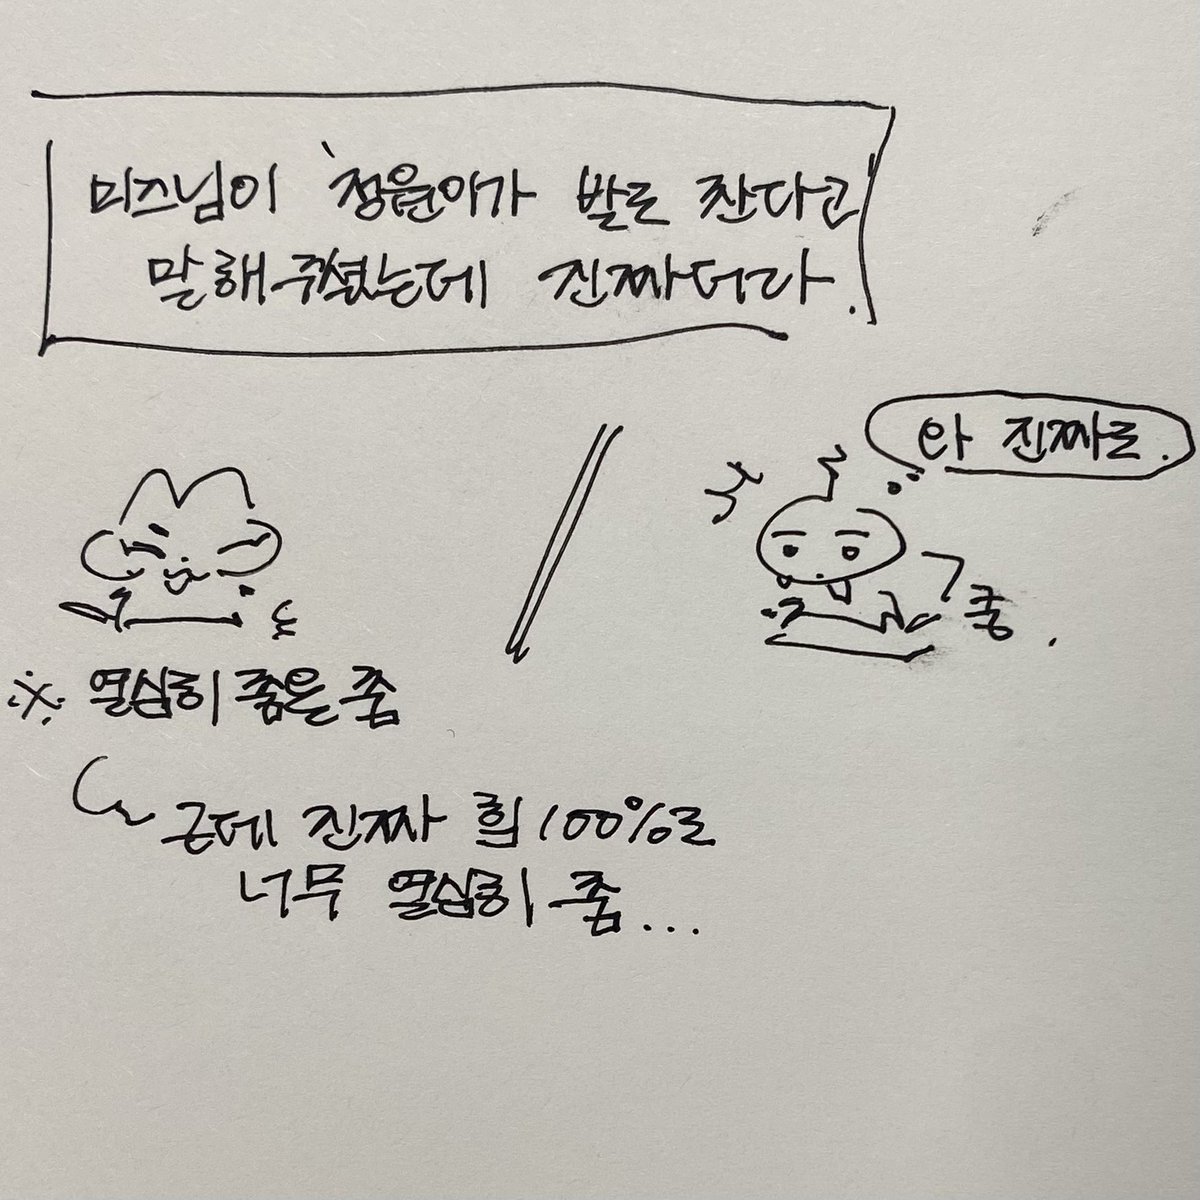 미즈님이 '정원이가 발로 찬다고
말해주셨는데 진짜더라.
와 진짜로.
쿵.
※ 열심히 춤은 춤
근데 진짜 힘 100%로
너무 열심히 춤...